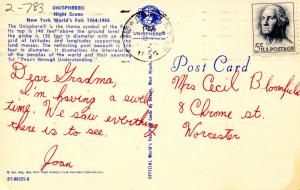 2-783
UNISPHERE®
Night Scene
New York World's Fair 1964-1965
The Unisphere® is the theme symbol of the Fair.
Its top is 140 feet above the ground level and
the globe is 120 feet in diameter with an open
grid of latitudes and longitudes supporting the land
masses. The reflecting pool beneath is
feet in diameter. It dramatizes the interrelation
of the peoples of the world and their yearning
for "Peace through Understanding".
UNISPHERE®
Post Card
5¢
U.S. POSTAGE
Dear Grandma,
I'm having a swell
time. We saw everything
there is to see.
Joan
Mrs Cecil Bloomfield
8 Chrome st.
Worcester
DT-88525-B